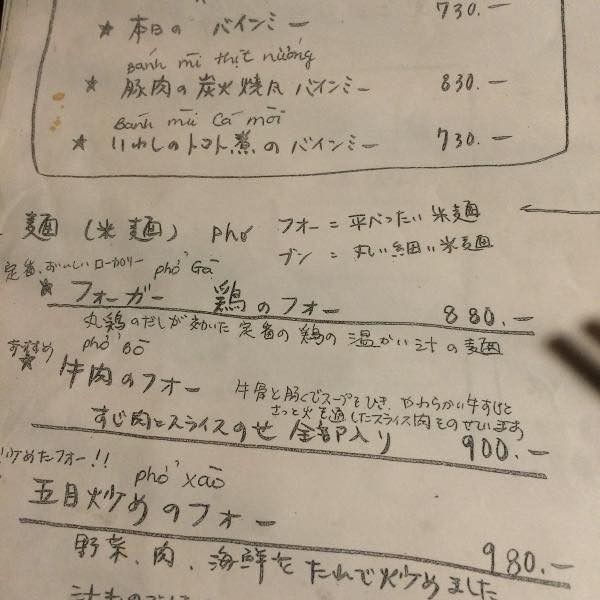 730.-
★ 本日の バインミー
Bánh mì thịt nướng
★ 豚肉の炭火焼バインミー 830.-
Bánh mì Cá mòi
★ いわしのトマト煮のバインミー 730.-
麺 (米麺) phở フォー = 平べったい米麺
ブン = 丸い細い米麺
定番、おいしいローカロリー phở Gà
★ フォーガー 鶏のフォー 880.-
丸鶏のだしが効いた定番の鶏の温かい汁の麺
おすすめ phở Bò
★ 牛肉のフォー 牛骨と豚でスープをひき、やわらかい牛すじと
さっと火を通したスライス肉をのせています
すじ肉とスライスのせ 全部入り 900.-
炒めたフォー!!
phở xào
五目炒めのフォー
980.-
野菜、肉、海鮮をたれで炒めました